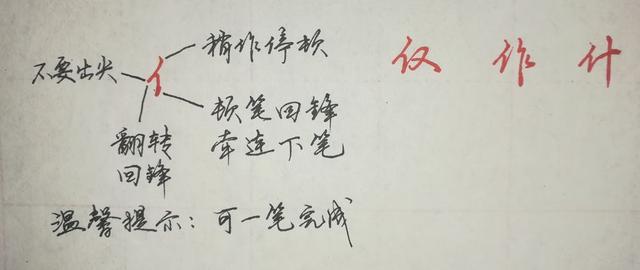 稍作停顿
仅 作 什
不要出尖
亻
顿笔回锋
牵连下笔
翻转
回锋
温馨提示：可一笔完成